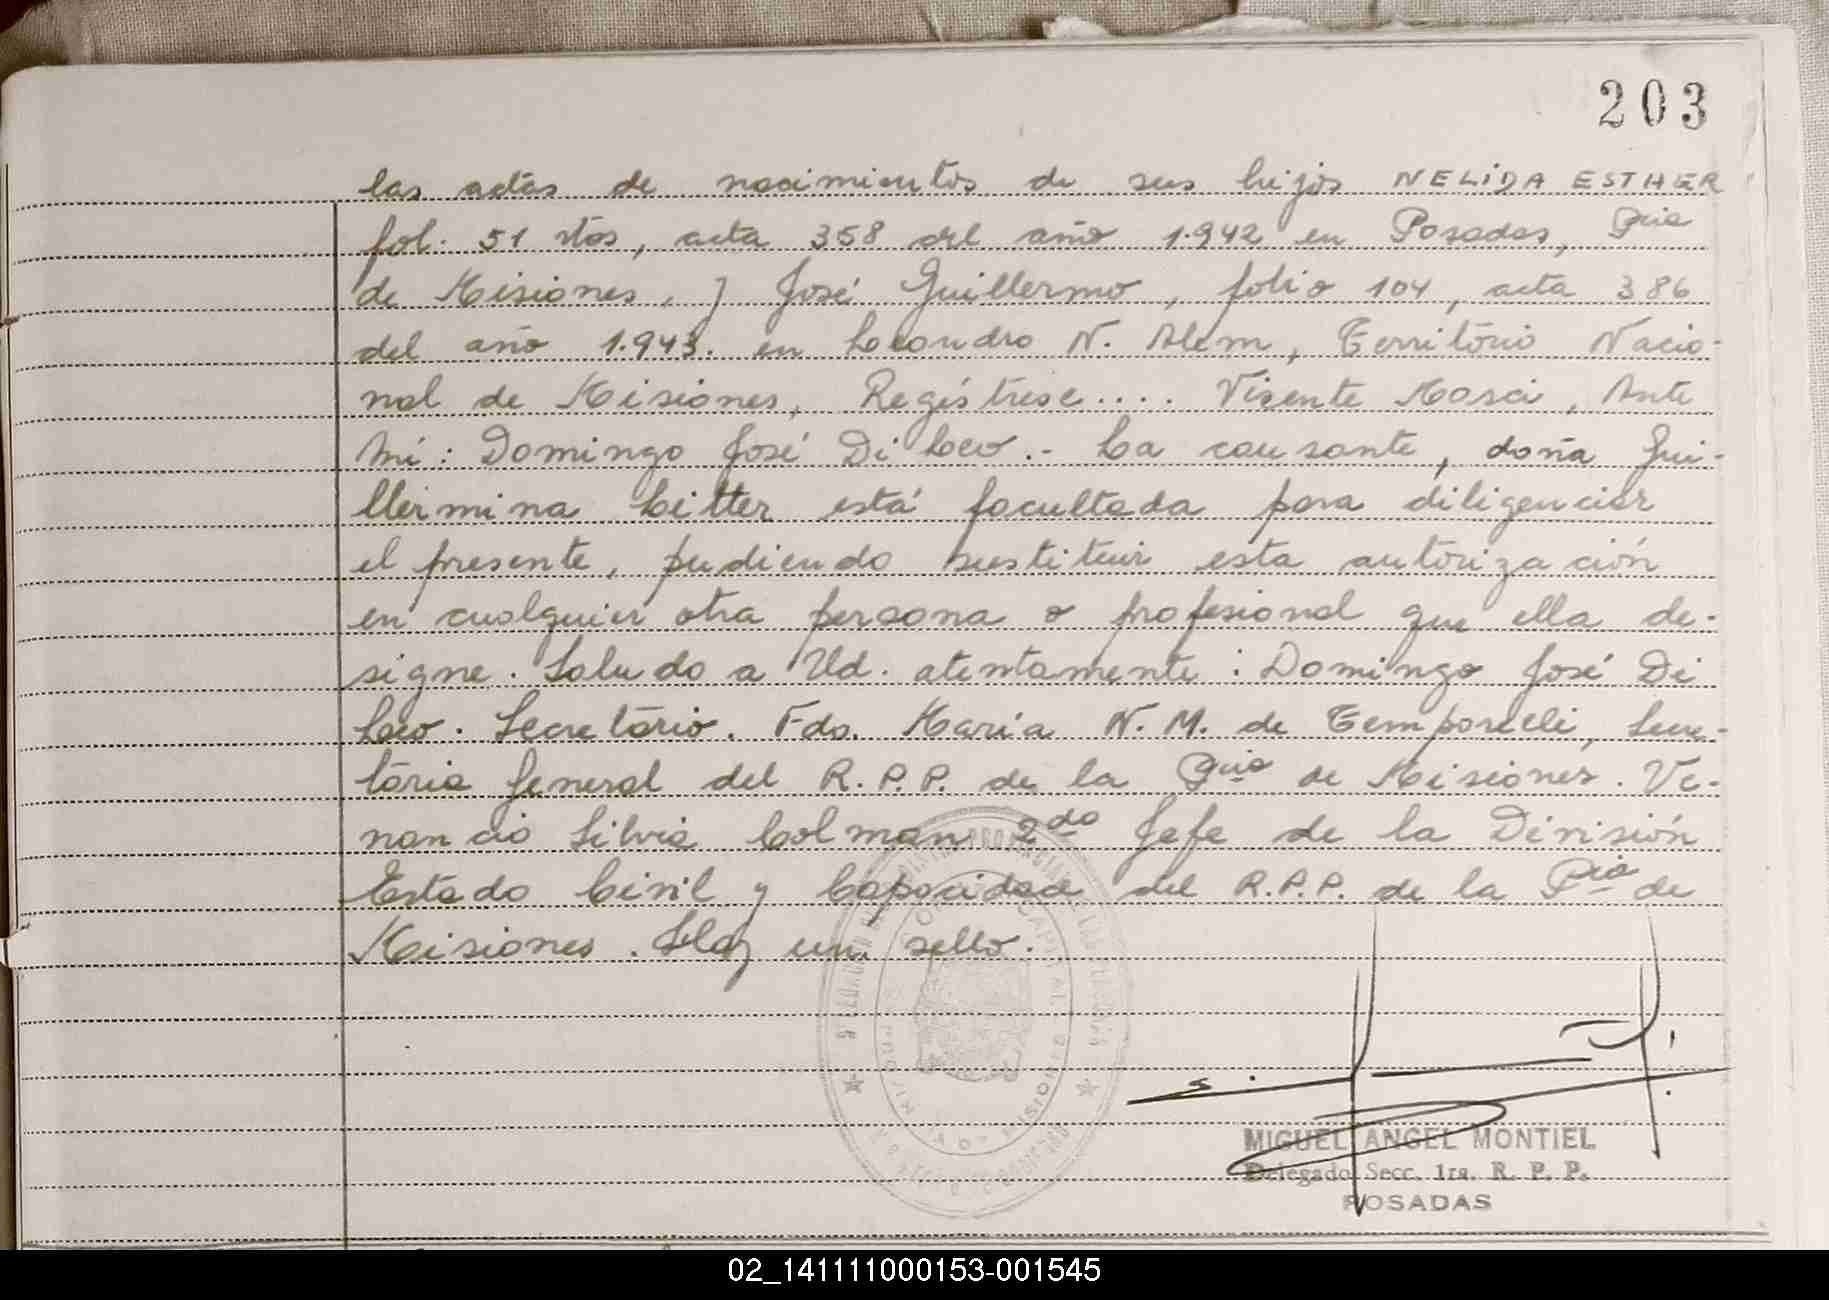 203
las actas de nacimientos de sus hijos NELIDA ESTHER
fol. 51 vtos, acta 358 del año 1.942 en Posadas, Pcia
de Misiones, y José Guillermo, folio 104, acta 386
del año 1.943. en Leandro N. Alem, Territorio Nacio-
nal de Misiones, Regístrese.... Vicente Mosci, Ante
Mí: Domingo José Di Leo.- La causante, doña Gui-
llermina Litter está facultada para diligenciar
el presente, pudiendo sustituir esta autorización
en cualquier otra persona o profesional que ella de-
signe. Saludo a Ud. atentamente: Domingo José Di
Leo. Secretario. Fdo. María N. M. de Temporelli, Secre-
taria General del R.P.P. de la Pcia de Misiones. Ve-
nancio Silvia Colman 2do Jefe de la División
Estado Civil y Capacidad del R.P.P. de la Pcia de
Misiones. Hay un sello.
MIGUEL ANGEL MONTIEL
Delegado Secc. 1ra. R. P. P.
POSADAS
02_141111000153-001545